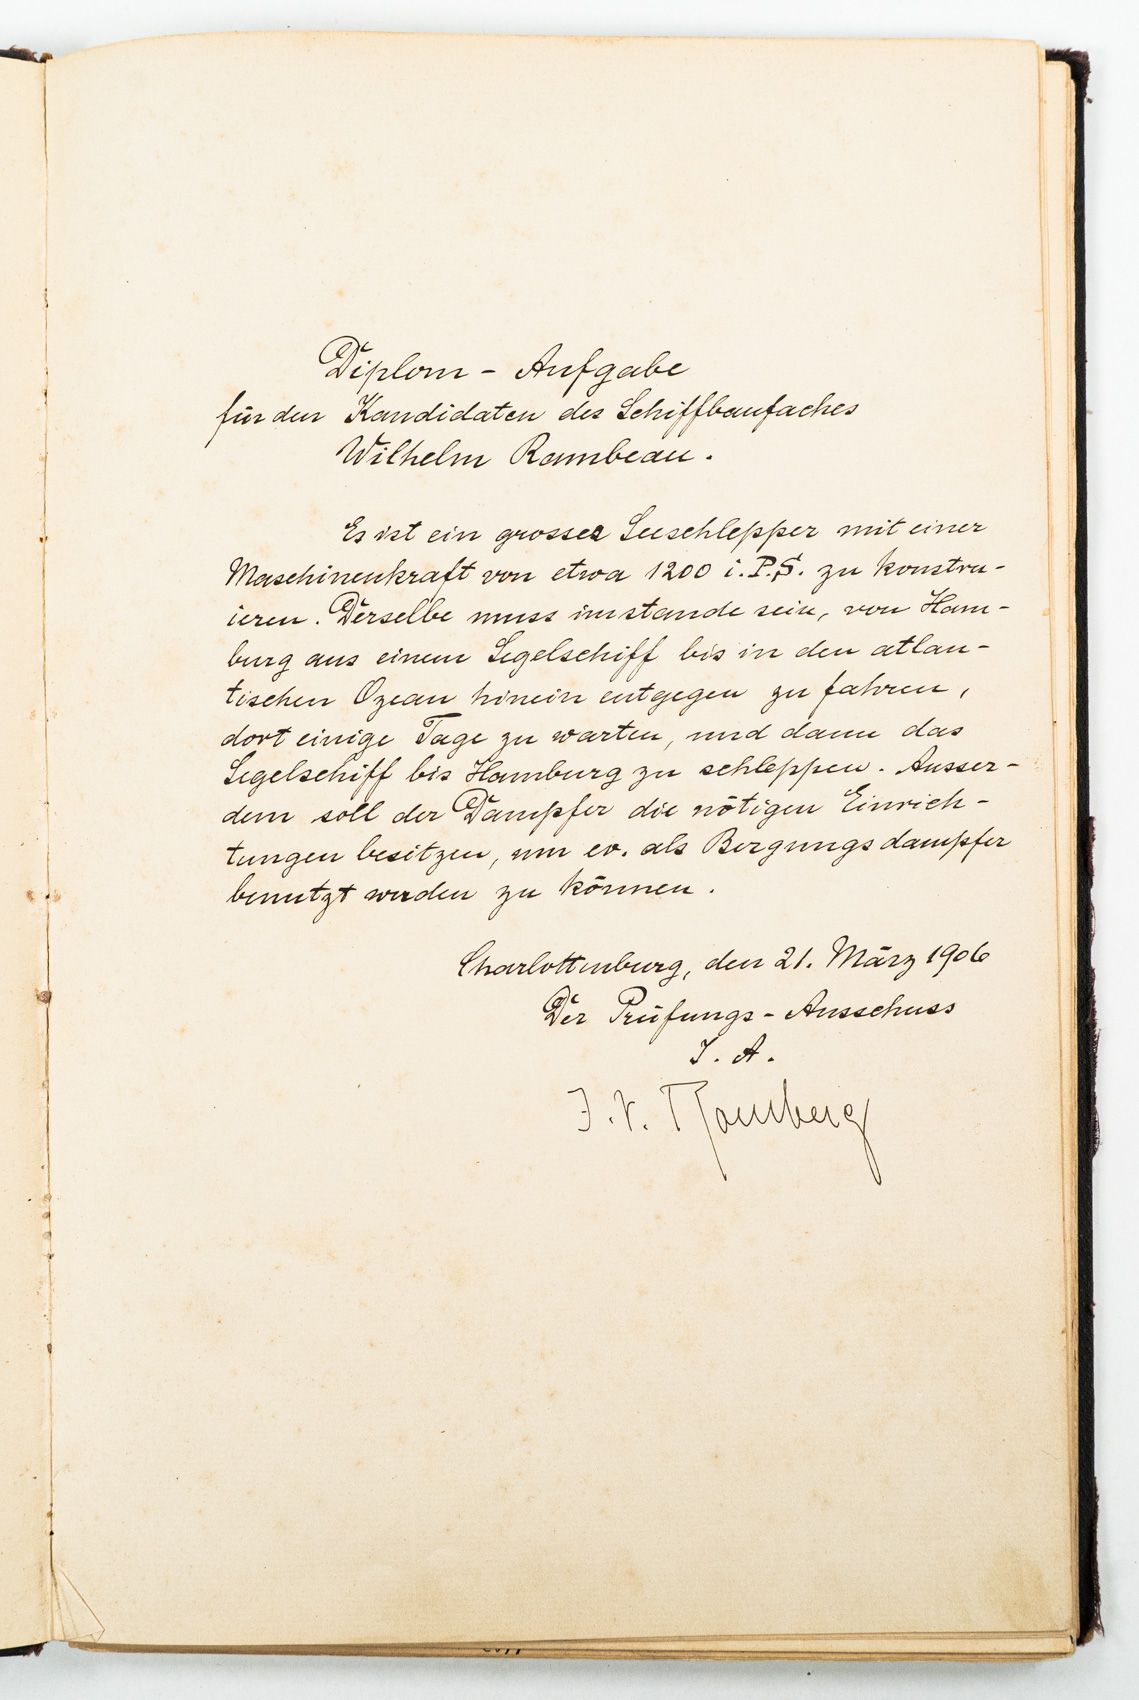 Diplom - Aufgabe
für den Kandidaten des Schiffbaufaches
Wilhelm Rambeau.
Es ist ein grosser Seeschlepper mit einer
Maschinenkraft von etwa 1200 i.P.S. zu konstru-
ieren. Derselbe muss imstande sein, von Ham-
burg aus einem Segelschiff bis in den atlan-
tischen Ozean hinein entgegen zu fahren,
dort einige Tage zu warten, und dann das
Segelschiff bis Hamburg zu schleppen. Ausser-
dem soll der Dampfer die nötigen Einrich-
tungen besitzen, um ev. als Bergungsdampfer
benutzt werden zu können.
Charlottenburg, den 21. März 1906
Der Prüfungs - Ausschuss
I. A.
I. V.